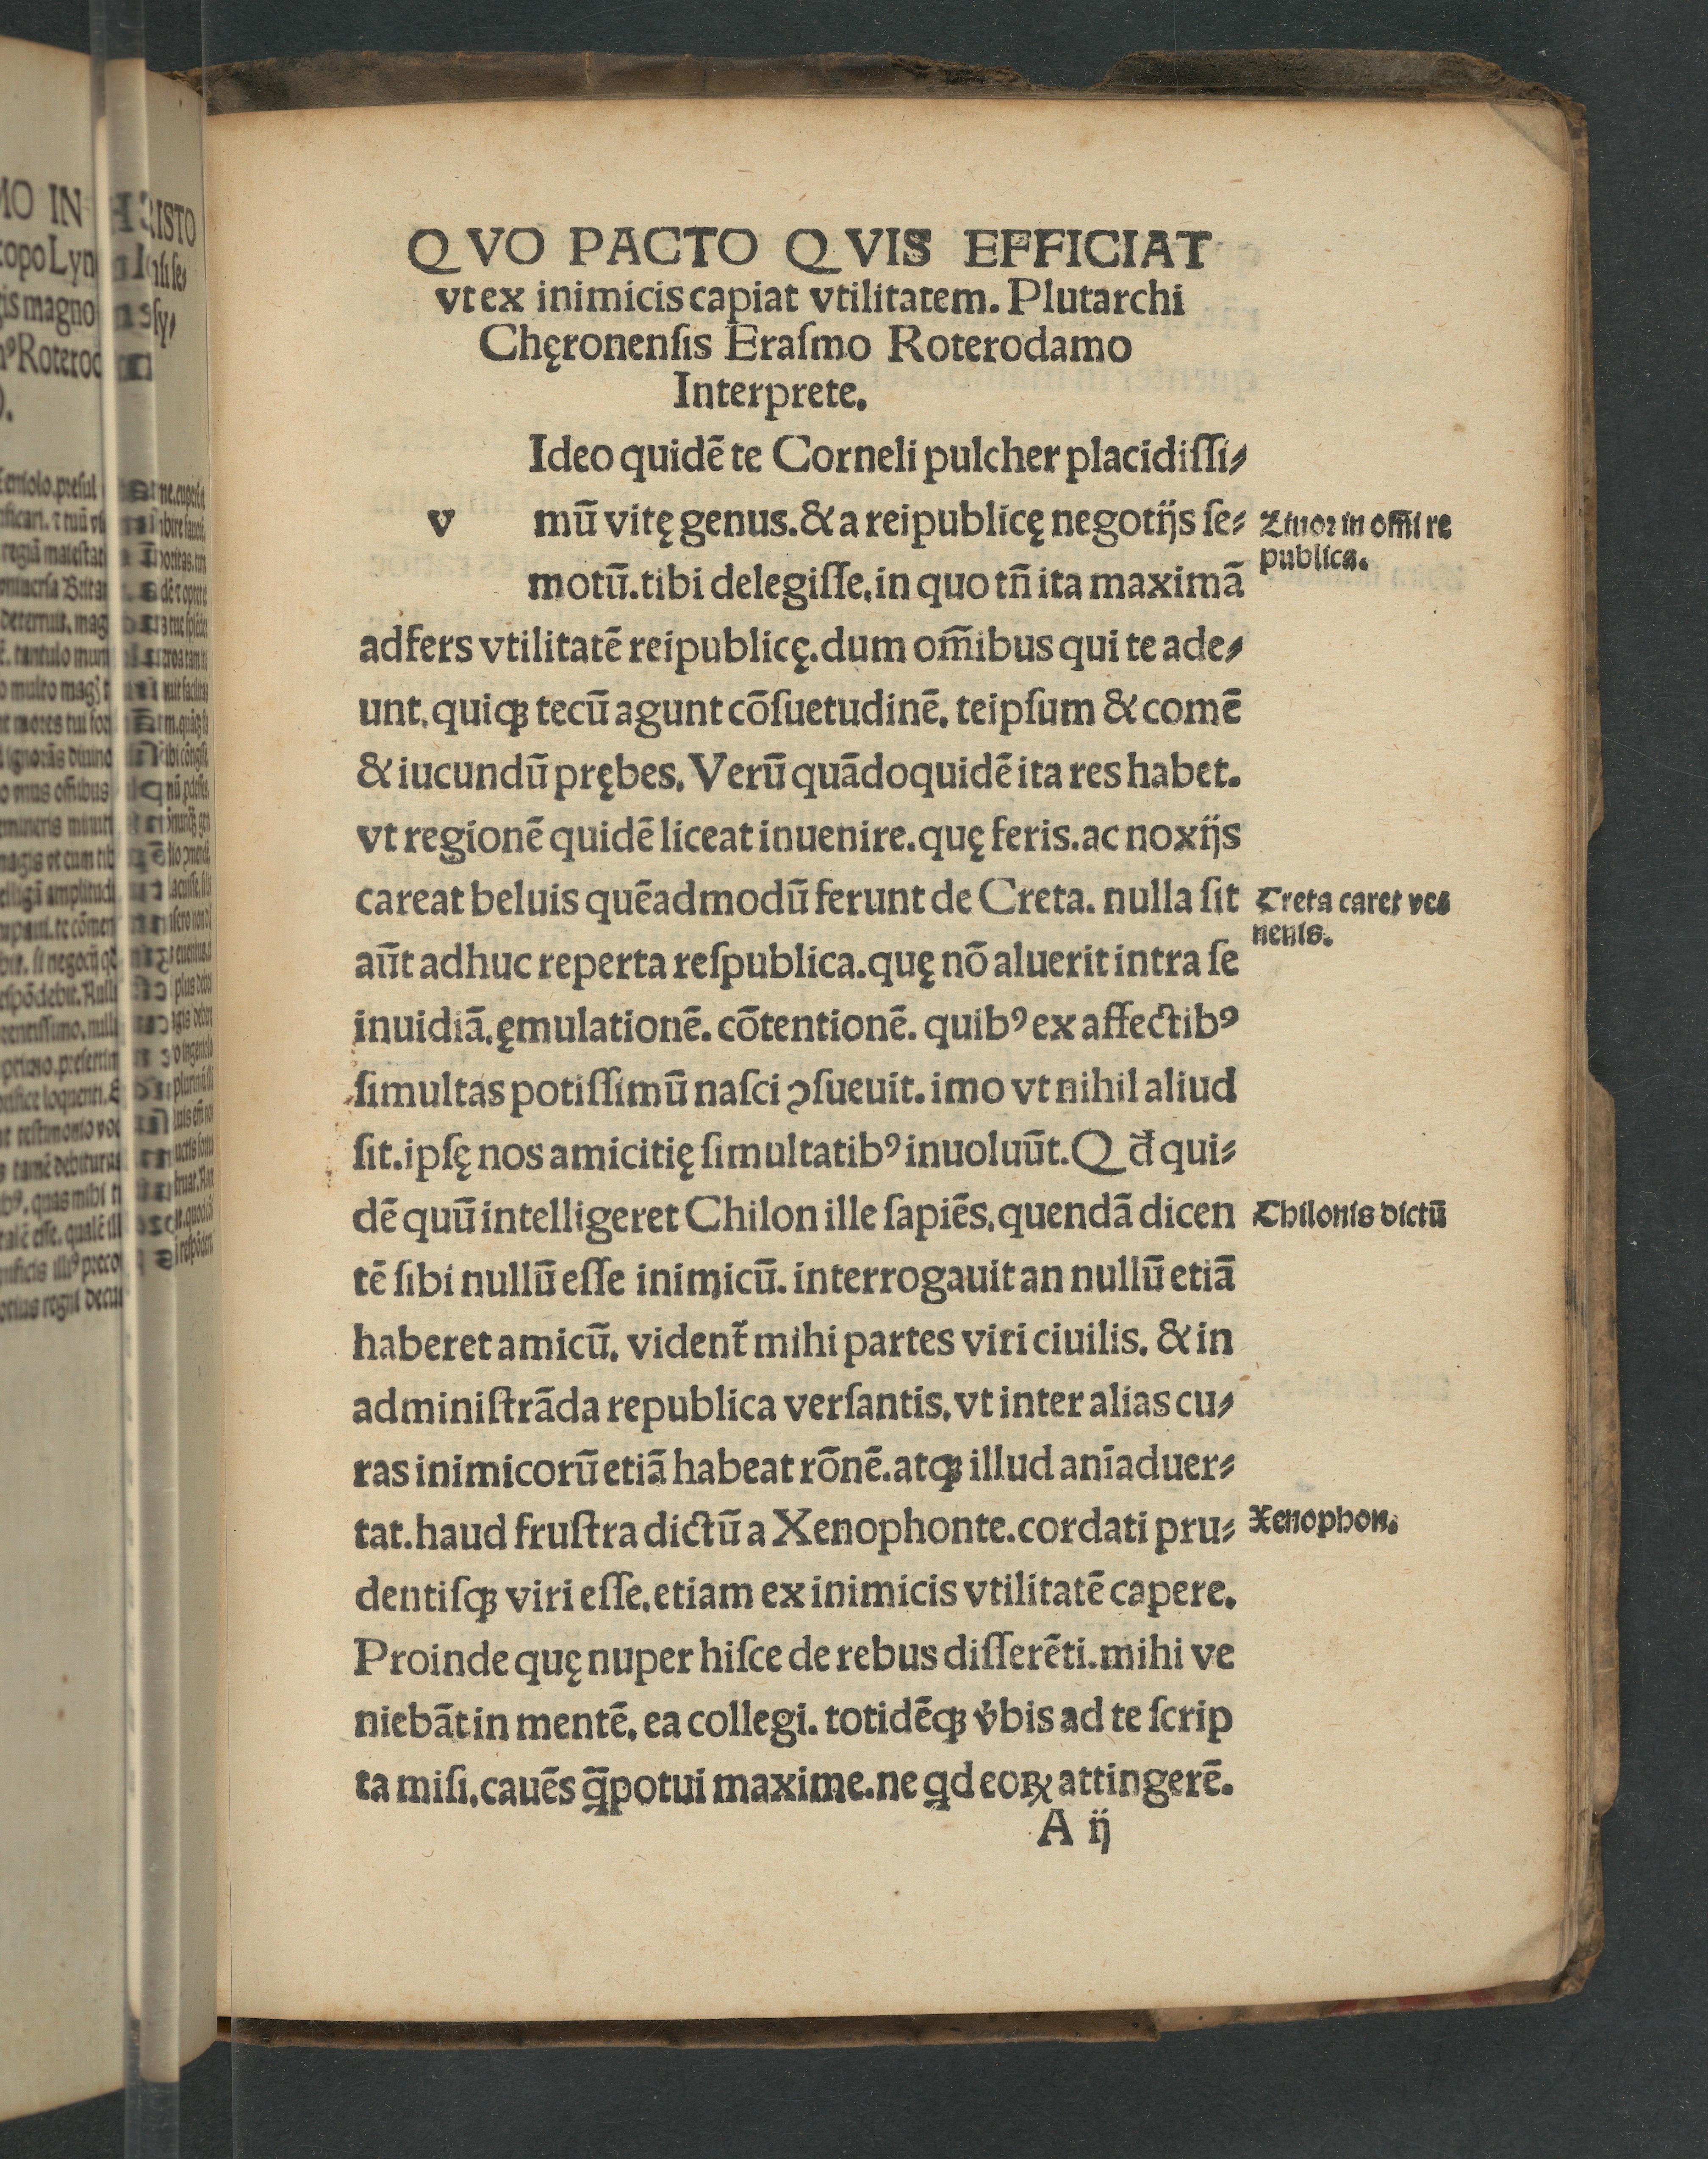 QVO PACTO QVIS EFFICIAT
vt ex inimicis capiat vtilitatem. Plutarchi
Chęronenſis Eraſmo Roterodamo
Interprete.
Ideo quidẽ te Corneli pulcher placidiſſi⸗
v
mũ vitę genus. & a reipublicę negotijs ſe⸗
motũ. tibi delegiſſe, in quo tñ ita maximã
adfers vtilitatẽ reipublicę. dum om̃ibus qui te ade⸗
unt, quiqꝫ tecũ agunt cõſuetudinẽ, teipſum & comẽ
& iucundũ prębes, Verũ quãdoquidẽ ita res habet.
vt regionẽ quidẽ liceat inuenire. quę feris. ac noxijs
careat beluis quẽadmodũ ferunt de Creta. nulla ſit
aũt adhuc reperta reſpublica. quę nõ aluerit intra ſe
inuidiã, ęmulationẽ. cõtentionẽ. quibꝰ ex affectibꝰ
ſimultas potiſſimũ naſci ꝯſueuit. imo vt nihil aliud
ſit. ipſę nos amicitię ſimultatibꝰ inuoluũt. Qd̃ qui⸗
dẽ quũ intelligeret Chilon ille ſapiẽs, quendã dicen
tẽ ſibi nullũ eſſe inimicũ. interrogauit an nullũ etiã
haberet amicũ, vident̃ mihi partes viri ciuilis, & in
adminiſtrãda republica verſantis, vt inter alias cu⸗
ras inimicorũ etiã habeat rõnẽ. atqꝫ illud anĩaduer⸗
tat. haud fruſtra dictũ a Xenophonte. cordati pru⸗
dentiſqꝫ viri eſſe, etiam ex inimicis vtilitatẽ capere.
Proinde quę nuper hiſce de rebus diſſerẽti. mihi ve
niebãt in mentẽ, ea collegi. totidẽqꝫ v̓bis ad te ſcrip
ta miſi, cauẽs q̃ꝫ potui maxime. ne qd eoꝝ attingerẽ.
A ij
Liuor in om̃i re
publica.
Creta caret ve⸗
nenis.
Chilonis dictũ
Xenophon.